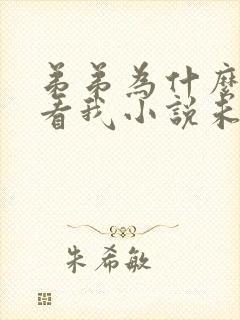 弟弟為什麼
看我小說未
朱希敏